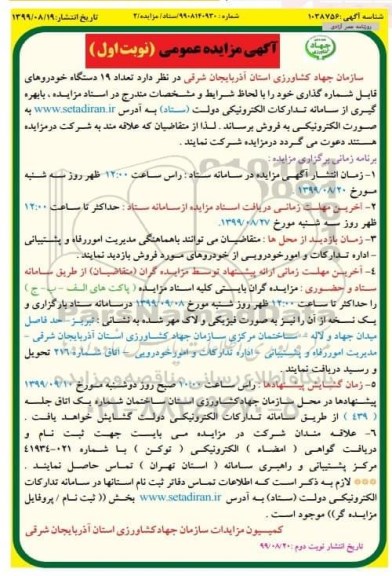 شناسه آگهی: ۱۰۳۸۷۵۶
شماره: ۹۹۰۸۱۴۰۹۳۰/ستاد/مزایده/۲
تاریخ انتشار: ۱۳۹۹/۰۸/۱۹
آگهی مزایده عمومی (نوبت اول)
سازمان جهاد کشاورزی استان آذربایجان شرقی در نظر دارد تعداد ۱۹ دستگاه خودروهای
قابل شماره گذاری خود را با لحاظ شرایط و مشخصات مندرج در اسناد مزایده، بابهره
گیری از سامانه تدارکات الکترونیکی دولت (ستاد) به آدرس www.setadiran.ir به
صورت الکترونیکی به فروش برساند. لذا از متقاضیان که علاقه مند به شرکت درمزایده
هستند دعوت می گردد درمزایده شرکت نمایند.
برنامه زمانی برگزاری مزایده:
۱- زمان انتشار آگهی مزایده در سامانه ستاد: راس ساعت ۱۲:۰۰ ظهر روز سه شنبه
مورخ ۱۳۹۹/۰۸/۲۰
۲- آخرین مهلت زمانی دریافت اسناد مزایده ازسامانه ستاد: حداکثر تا ساعت ۱۲:۰۰
ظهر روز سه شنبه مورخ ۱۳۹۹/۰۸/۲۷.
۳- زمان بازدید از محل ها: متقاضیان می توانند باهماهنگی مدیریت اموررفاه و پشتیبانی
- اداره تدارکات و امورخودرویی از خودروهای مورد فروش بازدید نمایند.
۴- آخرین مهلت زمانی ارائه پیشنهاد توسط مزایده گران (متقاضیان) از طریق سامانه
ستاد و حضوری: مزایده گران بایستی کلیه اسناد مزایده (پاکت های الف - ب - ج)
را حداکثر تا ساعت ۱۲:۰۰ ظهر روز شنبه مورخ ۱۳۹۹/۰۹/۰۸ درسامانه ستاد بارگزاری و
یک نسخه از آن را نیز به صورت فیزیکی و لاک مهر شده به نشانی: تبریز - حد فاصل
میدان جهاد و لاله - ساختمان مرکزی سازمان جهاد کشاورزی استان آذربایجان شرقی -
مدیریت اموررفاه و پشتیبانی - اداره تدارکات و امورخودرویی - اتاق شماره ۲۷۶ تحویل
و رسید دریافت نمایند.
۵- زمان گشایش پیشنهادها: راس ساعت ۱۰:۰۰ صبح روز دوشنبه مورخ ۱۳۹۹/۰۹/۱۷
پیشنهادها در محل سازمان جهادکشاورزی استان ساختمان شماره یک اتاق جلسه
(۴۳۹) از طریق سامانه تدارکات الکترونیکی دولت گشایش خواهد یافت.
۶- علاقه مندان شرکت در مزایده می بایست جهت ثبت نام و
دریافت گواهی (امضاء) الکترونیکی (توکن) با شماره ۰۲۱-۴۱۹۳۴
مرکز پشتیبانی و راهبری سامانه (استان تهران) تماس حاصل نمایند.
*** لازم به ذکر است که اطلاعات تماس دفاتر ثبت نام استانها در سامانه تدارکات
الکترونیکی دولت (ستاد) به آدرس www.setadiran.ir بخش ((ثبت نام / پروفایل
مزایده گر)) موجود است.
کمیسیون مزایدات سازمان جهادکشاورزی استان آذربایجان شرقی
تاریخ انتشار نوبت دوم: ۹۹/۰۸/۲۰